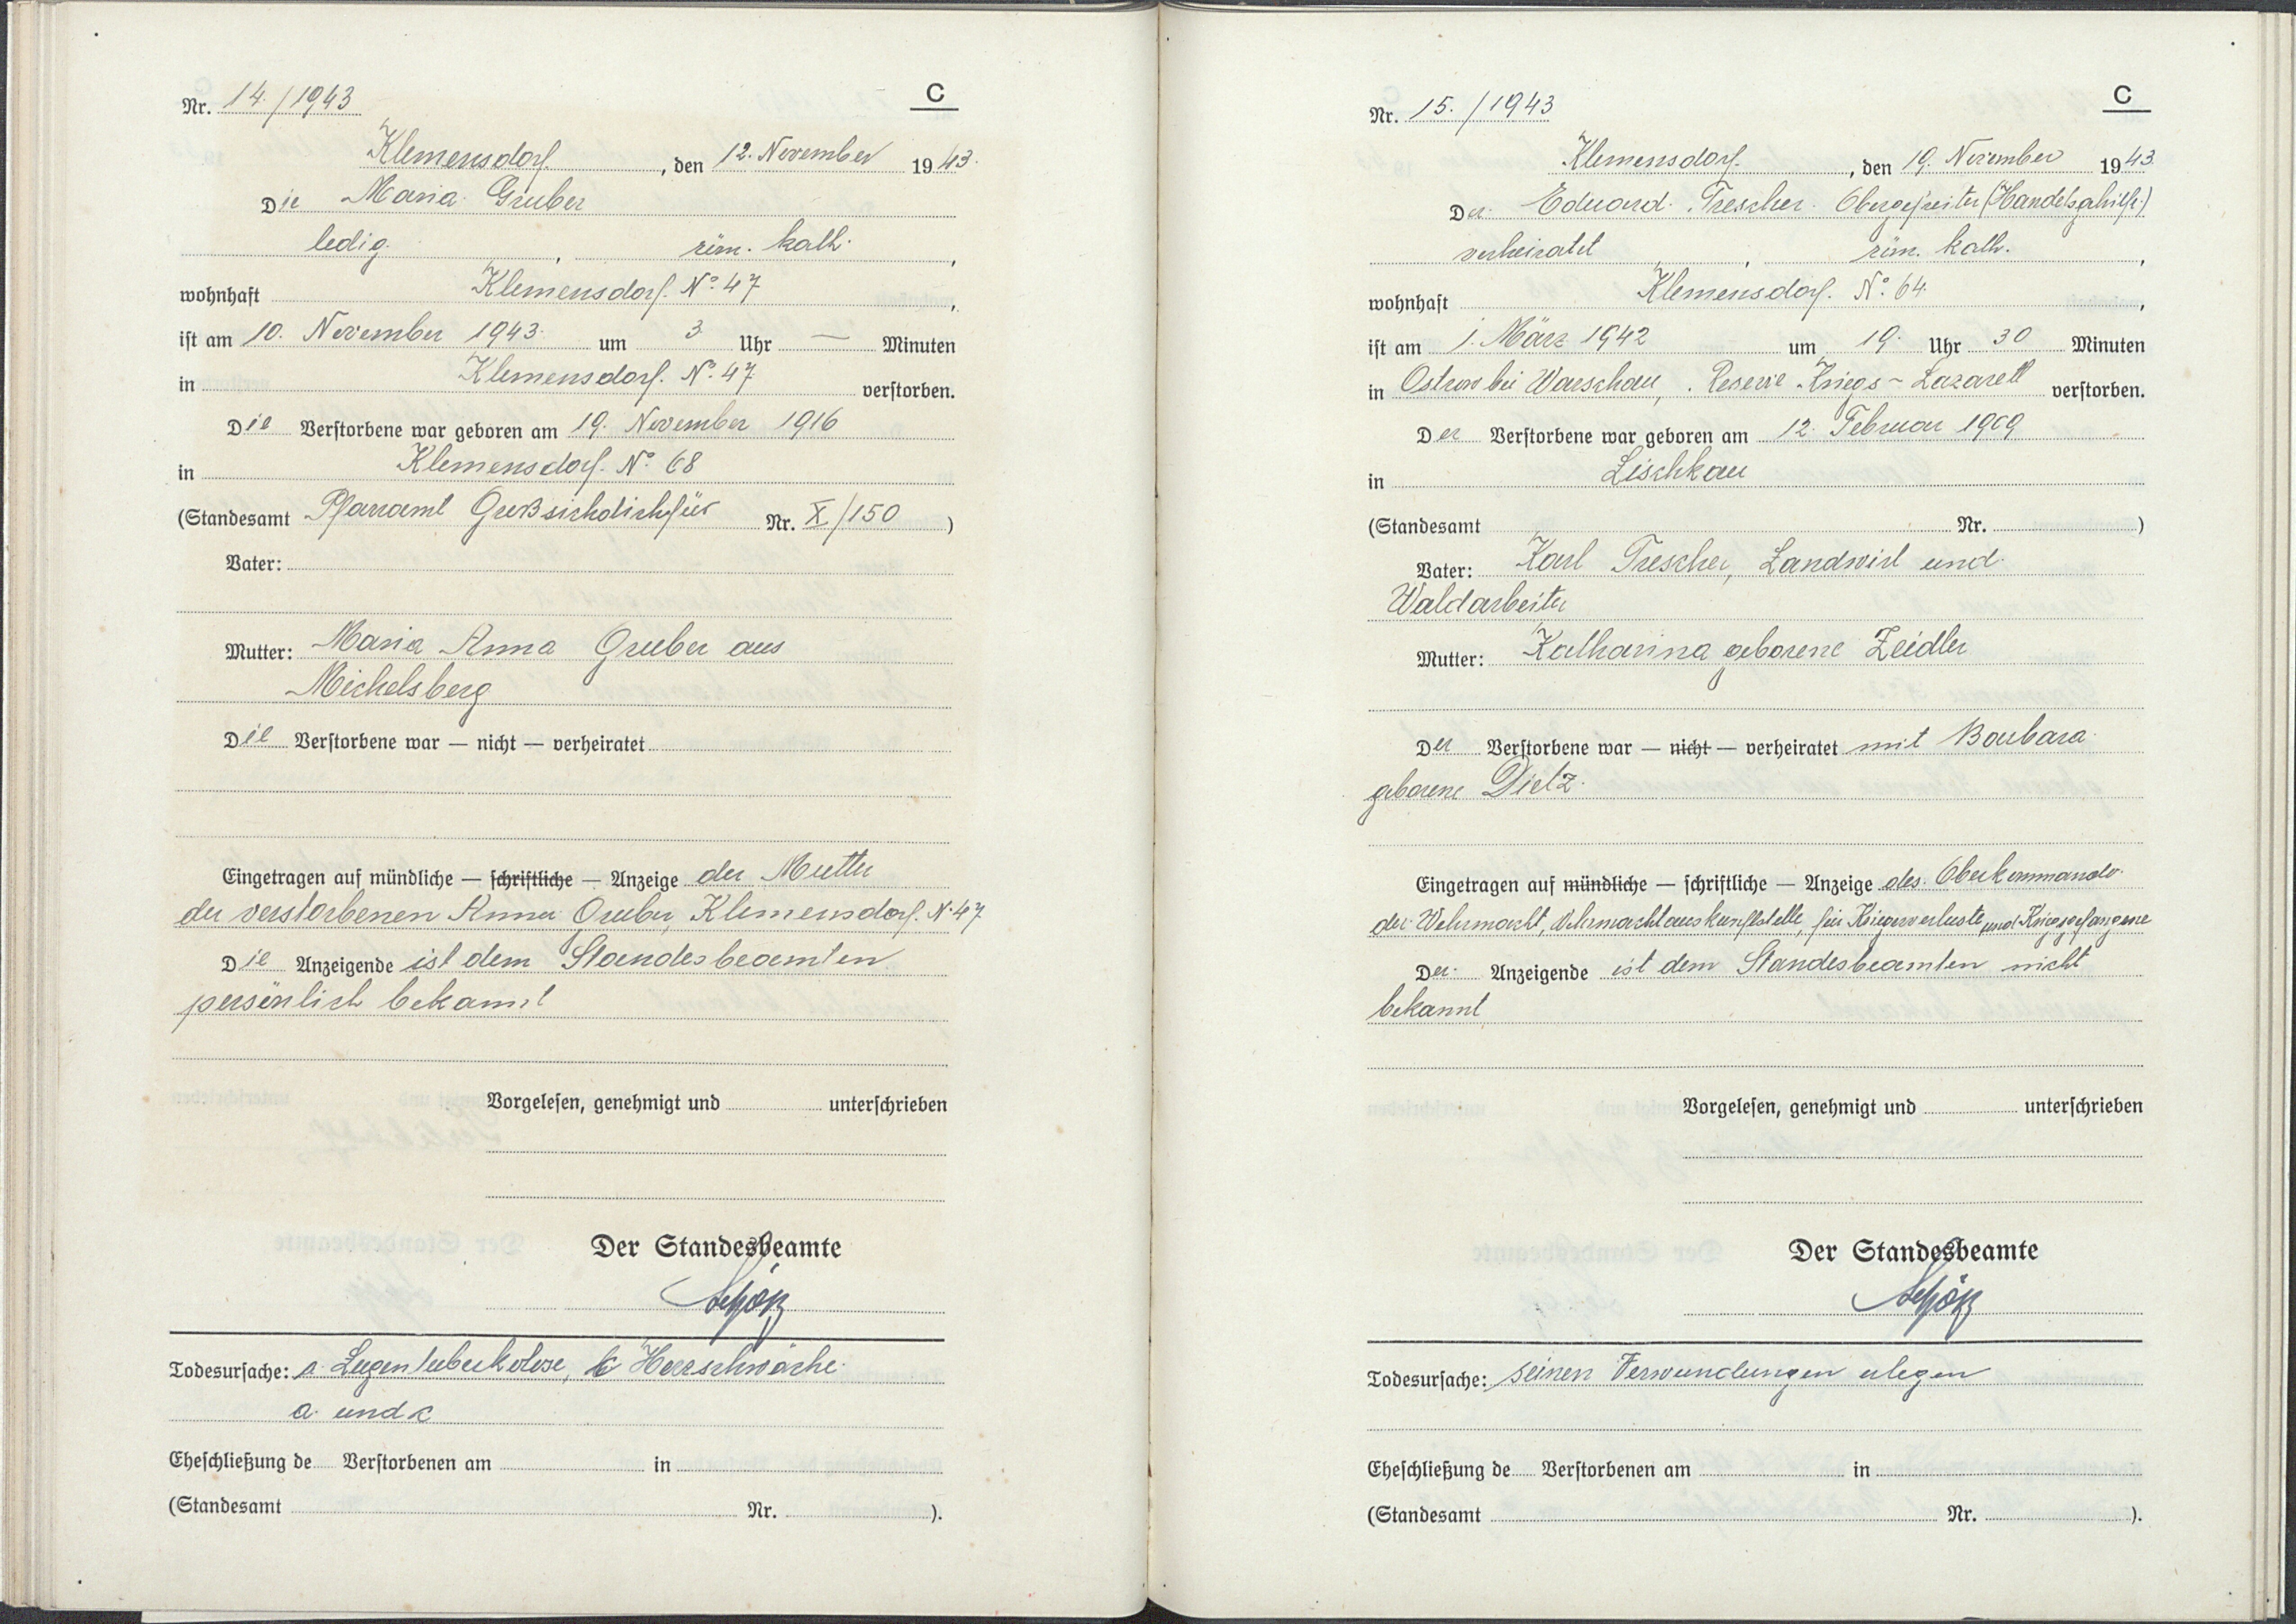 Nr. 14./1943
C
Klemensdorf, den 12. November 1943.
Die Maria Gruber
ledig, röm. kath.,
wohnhaft Klemensdorf. No. 47,
ist am 10. November 1943. um 3 Uhr — Minuten
in Klemensdorf. No. 47 verstorben.
Die Verstorbene war geboren am 19. November 1916
in Klemensdorf. No. 68
(Standesamt Pfarramt Großsichdichfür Nr. X/150)
Vater:
Mutter: Maria Anna Gruber aus
Michelsberg
Die Verstorbene war — nicht — verheiratet
Eingetragen auf mündliche — schriftliche — Anzeige der Mutter
der verstorbenen Anna Gruber, Klemensdorf. N. 47
Die Anzeigende ist dem Standesbeamten
persönlich bekannt
Vorgelesen, genehmigt und unterschrieben
Der Standesbeamte
Todesursache: a. Lugentuberkolose, b Herzschwäche.
a. und c
Eheschließung de Verstorbenen am in
(Standesamt Nr. ).
Nr. 15./1943
C
Klemensdorf., den 19. November 1943.
Der Eduard Trescher Obergefreiter (Handelsgehilfe)
verheiratet, röm. kath.,
wohnhaft Klemensdorf. No. 64,
ist am 1. März 1942 um 19. Uhr 30 Minuten
in Ostrow bei Warschau, Reserve-Kriegs-Lazarett verstorben.
Der Verstorbene war geboren am 12. Februar 1909
in Lischkau
(Standesamt Nr. )
Vater: Karl Trescher, Landwirt und
Waldarbeiter
Mutter: Katharina geborene Zeidler
Der Verstorbene war — nicht — verheiratet mit Barbara
geborene Dietz.
Eingetragen auf mündliche — schriftliche — Anzeige des Oberkommando
der Wehrmacht, Wehrmachtauskunftstelle, für Kriegerverluste und Kriegsgefangene
Der Anzeigende ist dem Standesbeamten nicht
bekannt
Vorgelesen, genehmigt und unterschrieben
Der Standesbeamte
Todesursache: seinen Verwundungen erlegen
Eheschließung de Verstorbenen am in
(Standesamt Nr. ).